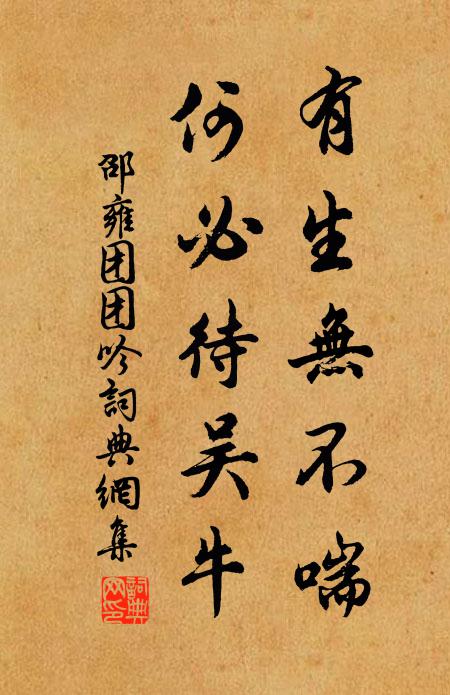 有生無不喘
何必待吴牛
邵雍团团吟詞典網集
詞典網印